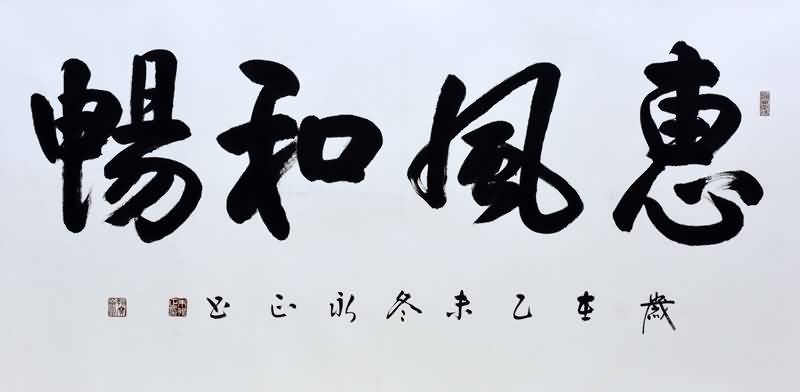 惠風和暢
歲在乙未冬永正书